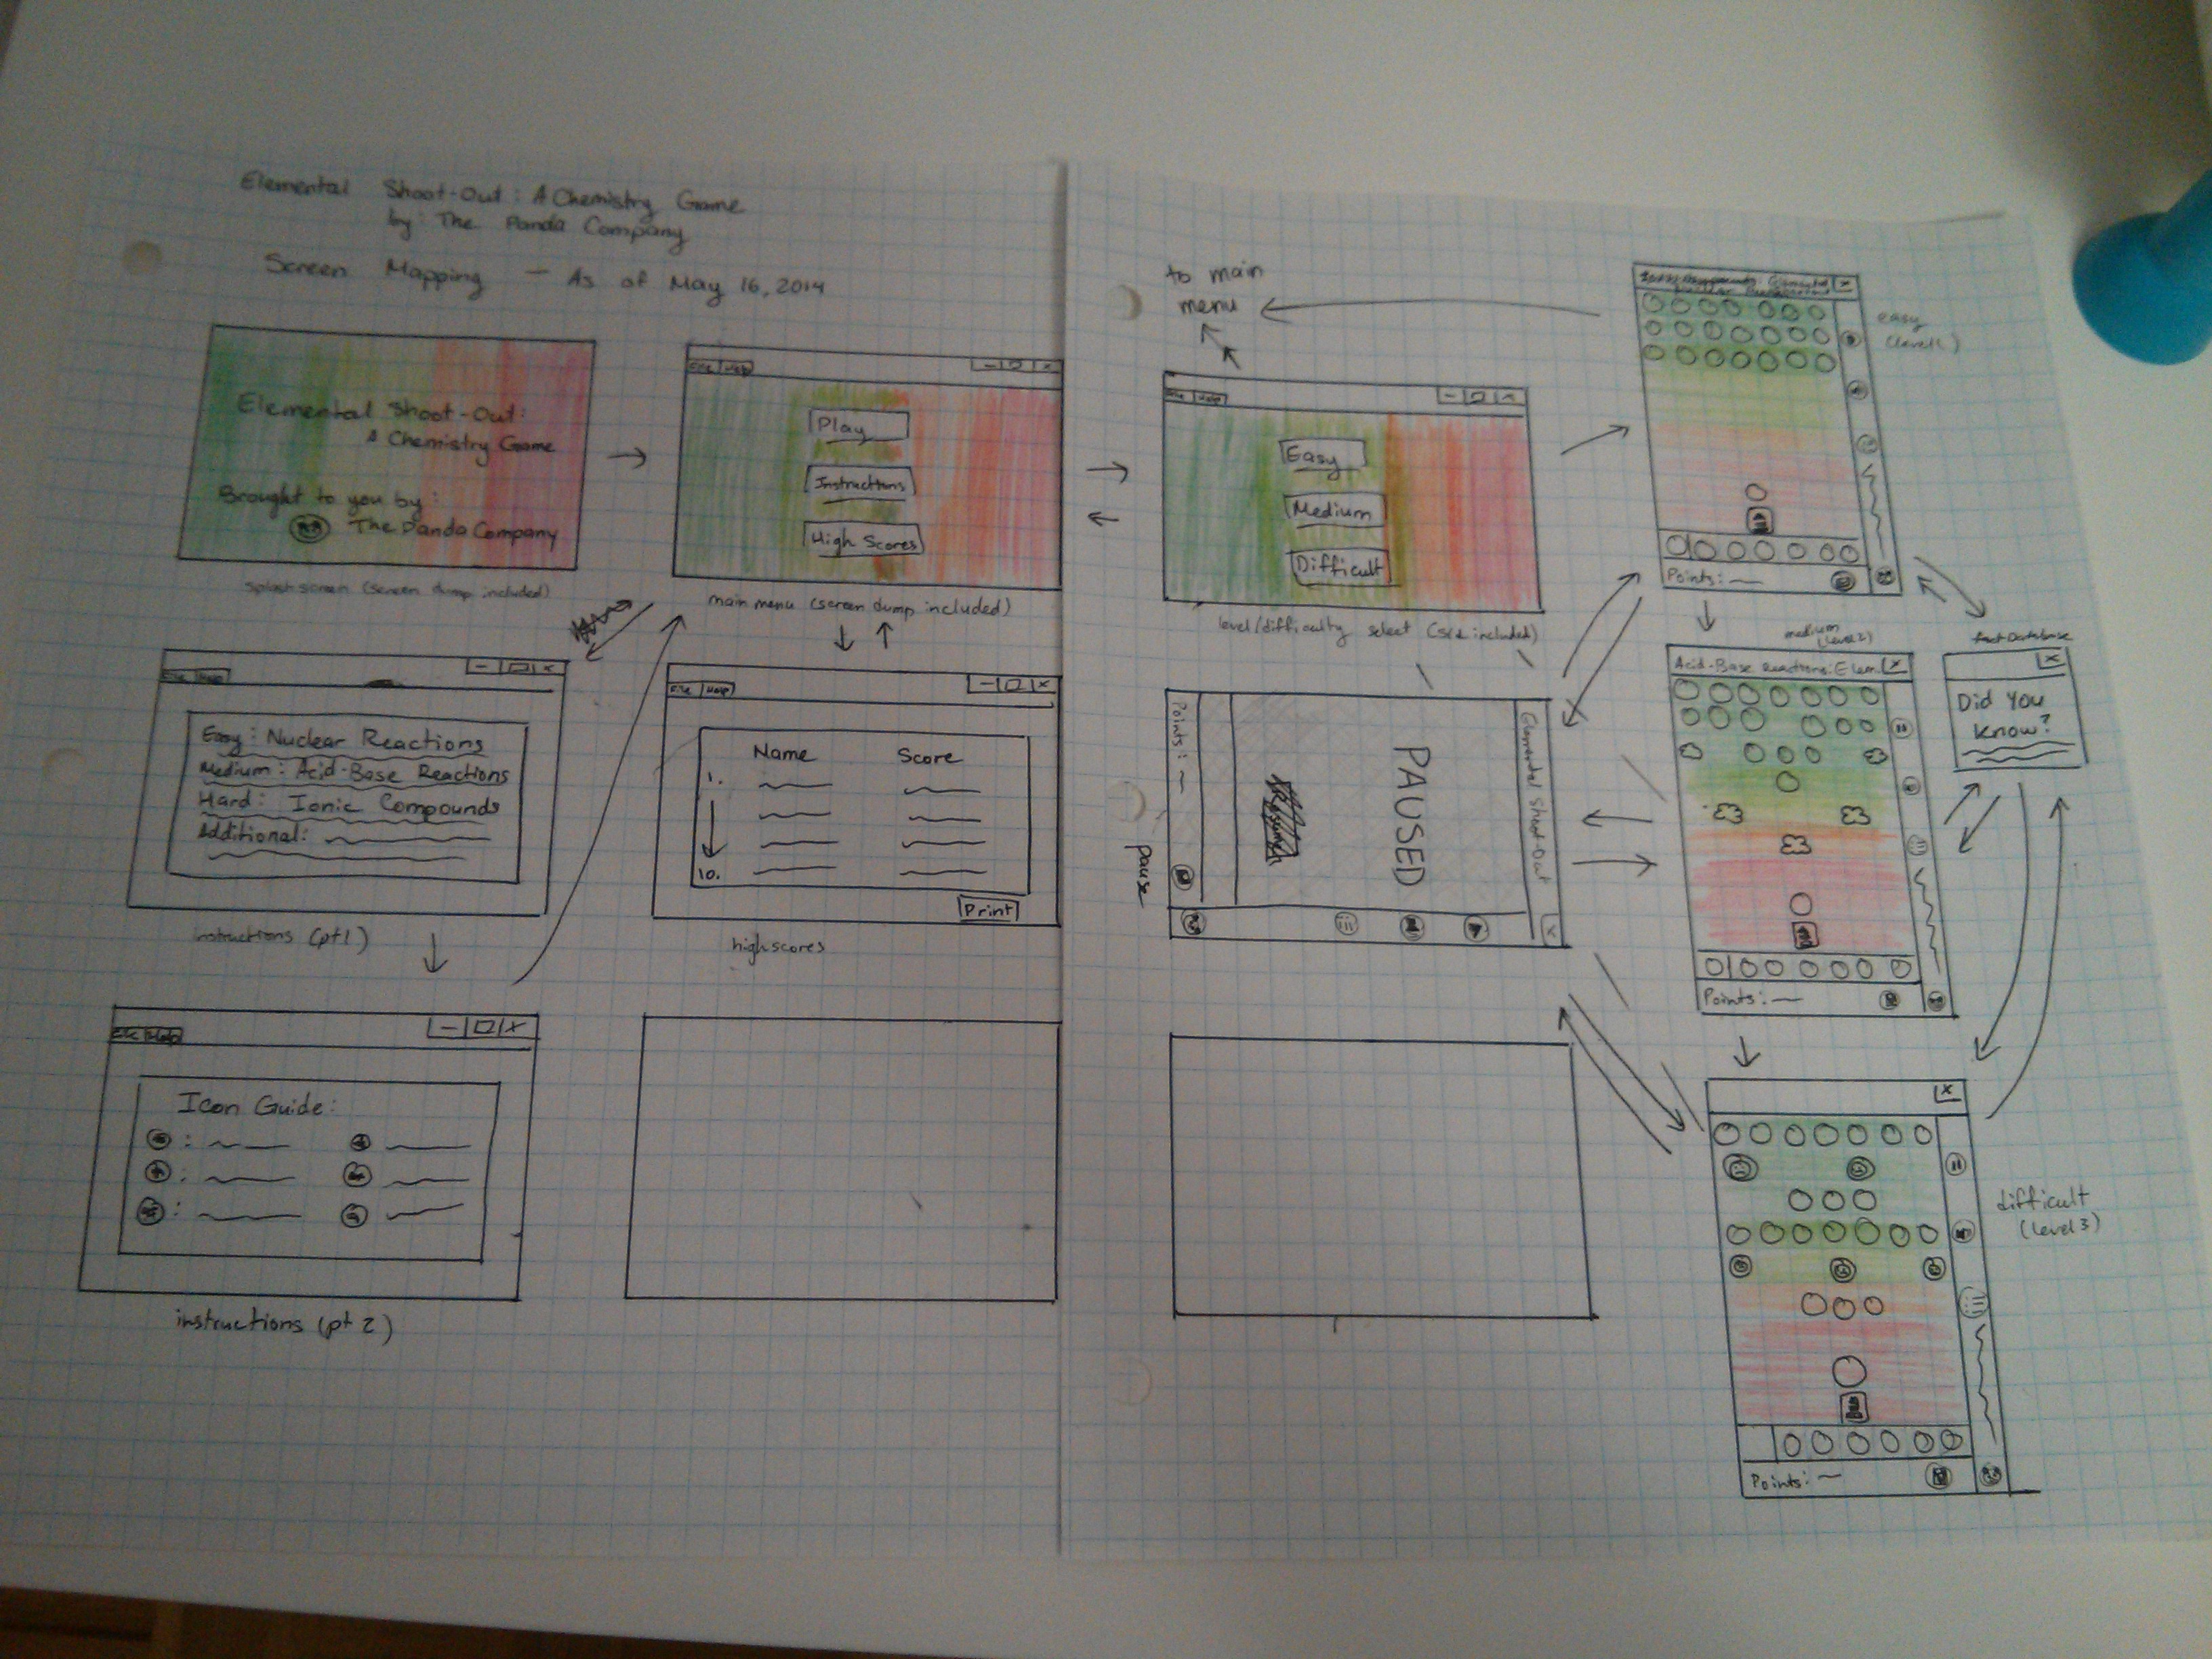 Elemental Shoot-Out: A Chemistry Game
by: The Panda Company
Screen Mapping - As of May 16, 2014
Elemental Shoot-Out:
A Chemistry Game
Brought to you by:
The Panda Company
splash screen (screen dump included)
File Help
Play
Instructions
High Scores
main menu (screen dump included)
File Help
Easy: Nuclear Reactions
Medium: Acid-Base Reactions
Hard: Ionic Compounds
Additional:
instructions (pt1)
File Help
Name Score
1.
10.
Print
highscores
File Help
Icon Guide:
instructions (pt 2)
to main
menu
File Help
Easy
Medium
Difficult
level/difficulty select (s.d. included)
Elemental Shoot-Out
PAUSED
Points:
pause
easy
(level 1)
Points:
medium
(level 2)
Acid-Base Reactions: Elem.
Points:
fact Database
Did You
Know?
difficult
(level 3)
Points: